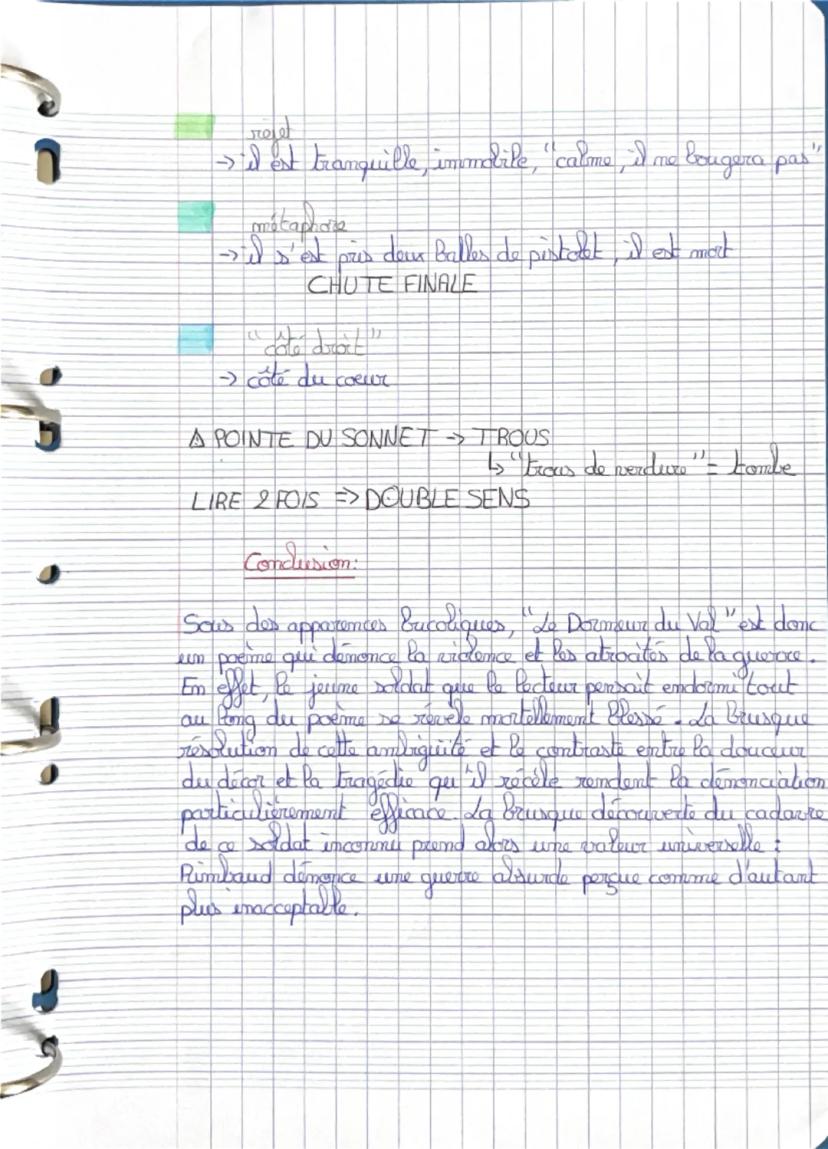 rejet
→ il est tranquille, immobile, "calme, il ne bougera pas"
métaphore
→ il s'est pris deux balles de pistolet, il est mort
CHUTE FINALE
"côté droit"
→ côté du coeur
⚠ POINTE DU SONNET → TROUS
↳ "trous de verdure" = tombe
LIRE 2 FOIS => DOUBLE SENS
Conclusion:
Sous des apparences bucoliques, "Le Dormeur du Val" est donc
un poème qui dénonce la violence et les atrocités de la guerre.
En effet, le jeune soldat que le lecteur pensait endormi tout
au long du poème se révèle mortellement blessé. La brusque
résolution de cette ambiguïté et le contraste entre la douceur
du décor et la tragédie qu'il récèle rendent la dénonciation
particulièrement efficace. La brusque découverte du cadavre
de ce soldat inconnu prend alors une valeur universelle :
Rimbaud dénonce une guerre absurde perçue comme d'autant
plus inacceptable.